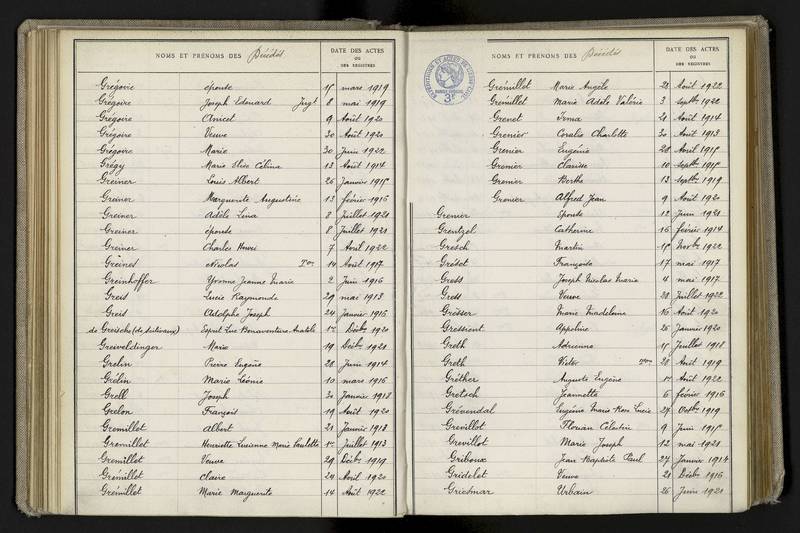 NOMS ET PRÉNOMS DES Décédés DATE DES ACTES OU DES REGISTRES
Grégoire épouse 15 mars 1919
Grégoire Joseph Edouard Jugt 8 mai 1919
Grégoire Anicet 9 Août 1920
Grégoire Veuve 30 Août 1920
Grégoire Marie 30 Juin 1922
Grégy Marie Elise Célina 13 Août 1914
Greiner Louis Albert 26 Janvier 1915
Greiner Marguerite Augustine 13 février 1916
Greiner Adèle Lina 8 Juillet 1921
Greiner épouse 8 Juillet 1921
Greiner Charles Henri 7 Avril 1922
Greines Nicolas 14 Août 1917
Greinhoffer Yvonne Jeanne Marie 2 Juin 1916
Greis Lucie Raymonde 29 mai 1913
Greis Adolphe Joseph 24 Janvier 1916
de Greische Esprit Luc Bonaventure 1er Décbre 1920
Greiveldinger Marie 19 Décbre 1921
Grelin Pierre Eugène 28 Juin 1914
Grélin Marie Léonie 10 mars 1916
Grell Joseph 30 Janvier 1918
Grelon François 19 Août 1920
Gremillet Albert 21 Janvier 1918
Gremillet Henriette Lucienne Marie Paulette 1er Juillet 1913
Gremillet Veuve 29 Décbre 1919
Grémillet Claire 24 Avril 1920
Grémillet Marie Marguerite 14 Août 1922
NOMS ET PRÉNOMS DES Décédés DATE DES ACTES OU DES REGISTRES
EXPÉDITIONS ET ACTES DE L'ÉTAT CIVIL
3F
Grémillet Marie Angèle 21 Août 1922
Gremillet Marie Adèle Valérie 3 septbre 1922
Grenet Irma 21 Août 1914
Grenier Coralie Charlotte 30 Août 1913
Grenier Eugénie 28 Avril 1915
Grenier Clarisse 10 septbre 1915
Grenier Berthe 13 septbre 1919
Grenier Alfred Jean 9 Août 1920
Grenier Epouse 12 Juin 1921
Grentzel Catherine 16 février 1914
Gresch Martin 15 Novbre 1922
Grésot Françoise 17 mai 1917
Gress Joseph Nicolas Marie 4 mai 1917
Gress Veuve 28 Juillet 1922
Gresser Marie Madeleine 16 Août 1920
Gressient Appoline 25 Janvier 1920
Greth Adrienne 15 Juillet 1918
Greth Victor 28 Août 1919
Gréther Auguste Eugène 1er Août 1922
Gretsch Jeannette 6 février 1916
Grévendal Eugénie Marie Rose Lucie 27 Octbre 1919
Grevillot Florian Célestin 9 Juin 1915
Grevillot Marie Joseph 12 mai 1921
Griboux Jean Baptiste Paul 27 Janvier 1914
Gridelet Veuve 21 Décbre 1916
Griesmar Urbain 26 Juin 1921